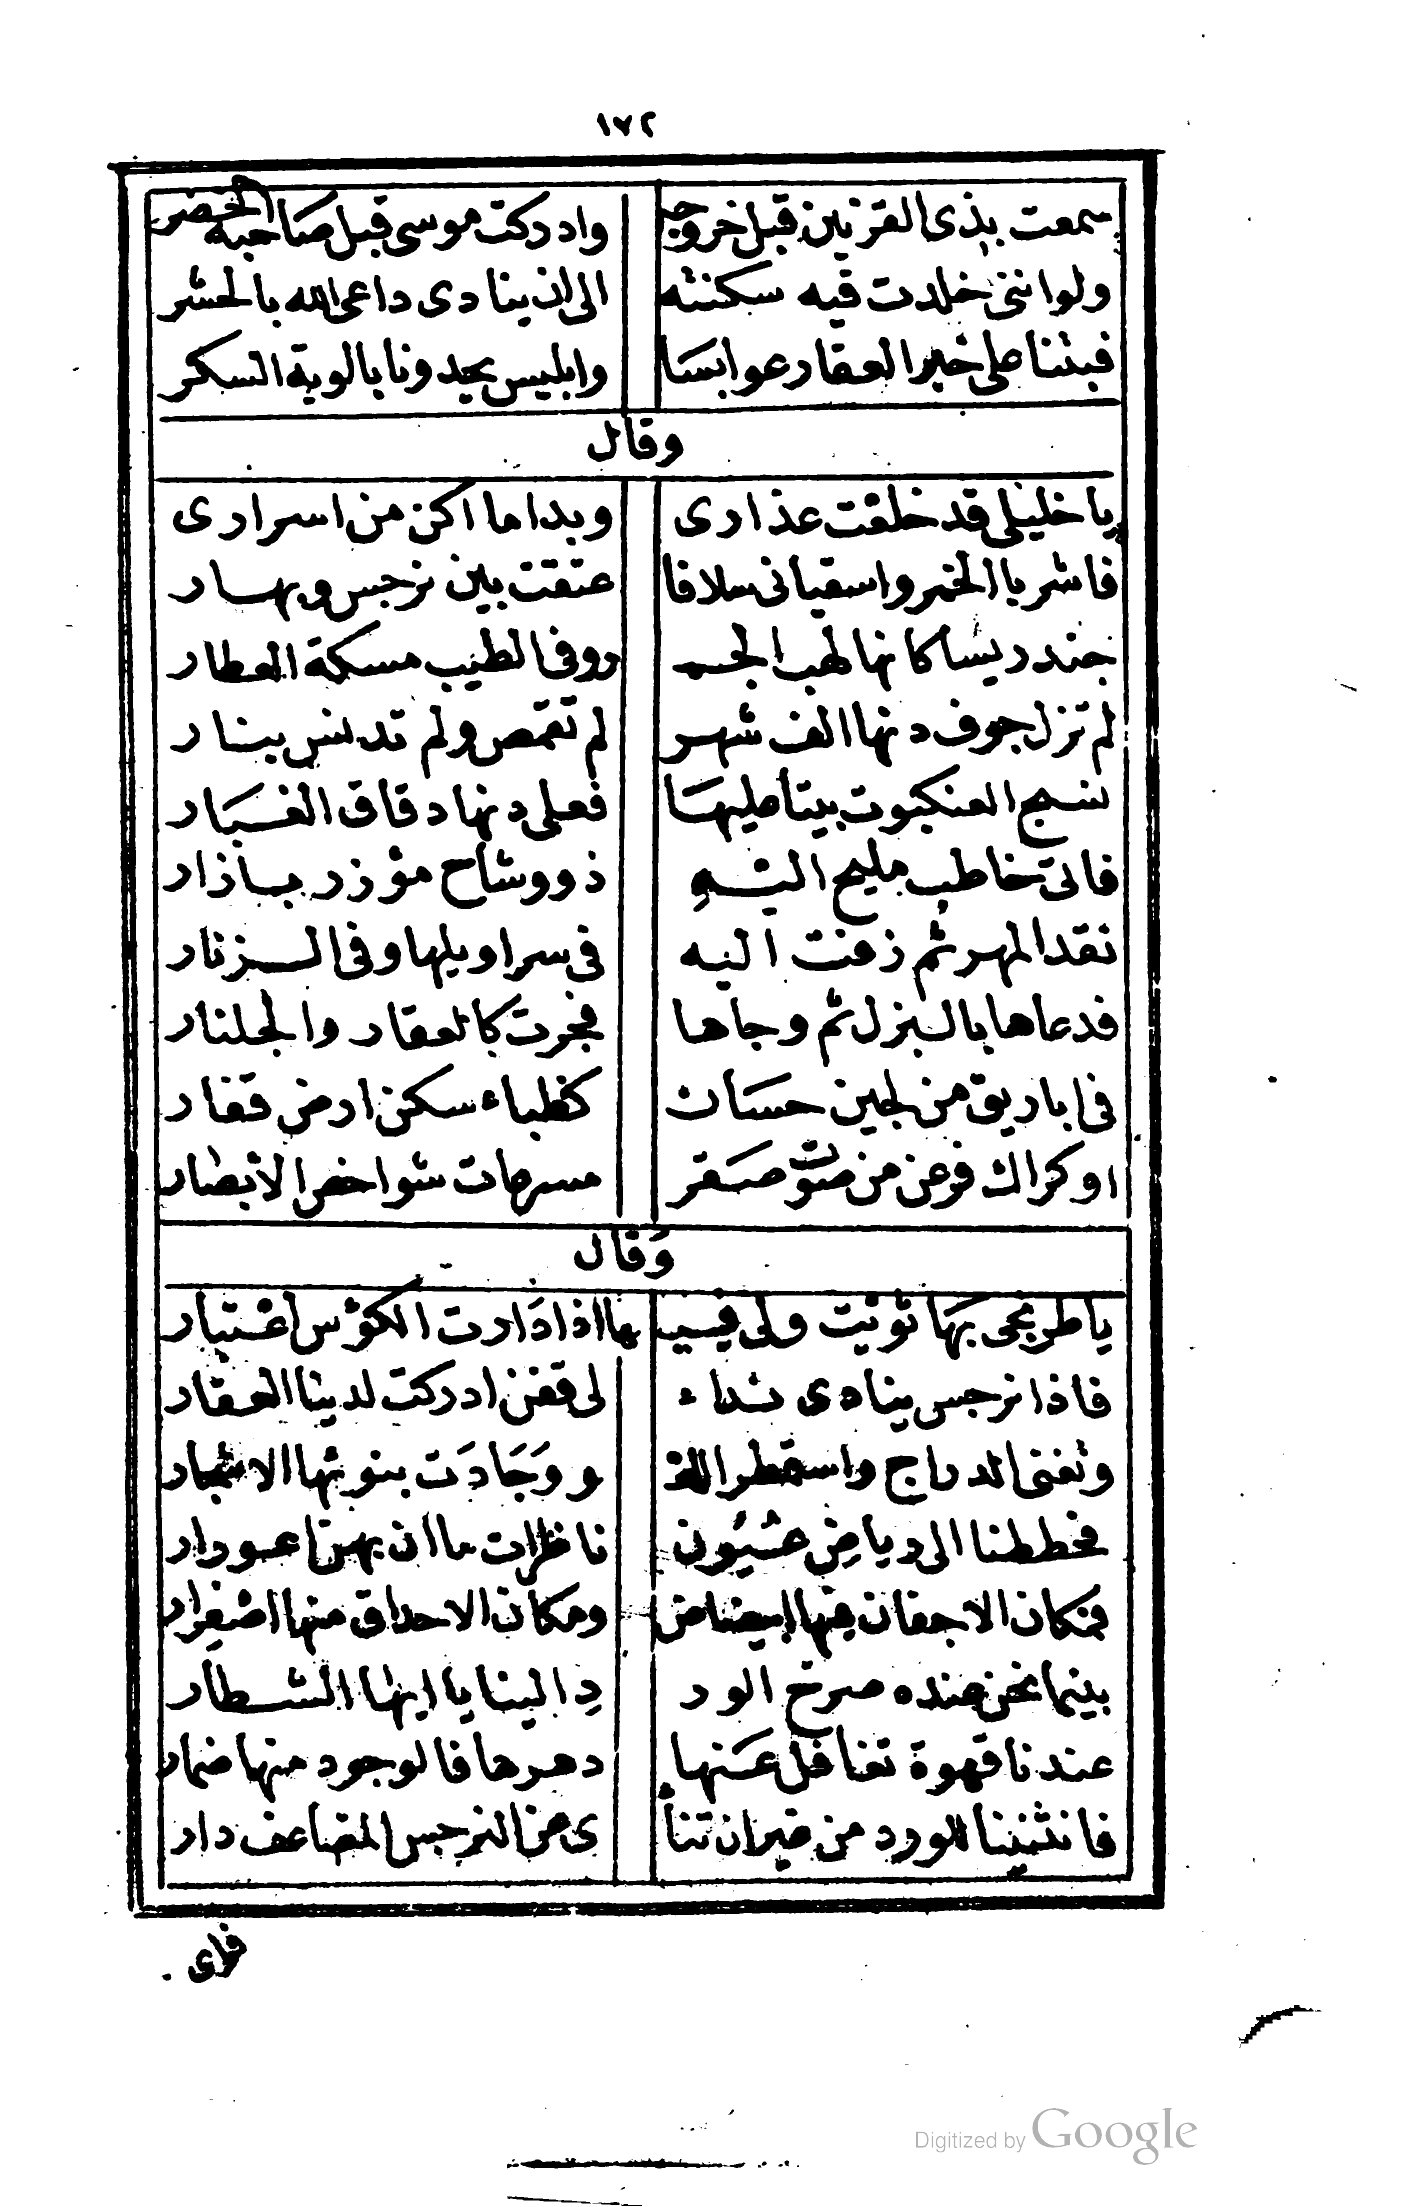 ١٧٢
سمعت بذى القرنين قبل خروجه وادركت موسى قبل صاحبه الخضر
ولو اننى خلدت فيه سكنته الى ان ينادى داعى الله بالحشر
فبتنا على خير العقار عوابسا وابليس يحدونا بالوية السكر
وقال
يا خليلى قد خلعت عذارى وبدا ما اكن من اسرارى
فاشربا الخمر واسقيانى سلافا عتقت بين نرجس وبهار
خندريسا كانها لهب الجمـ ر وفى الطيب مسكة العطار
لم تزل جوف دنها الف شهر لم تقمص ولم تدنس بنار
نسج العنكبوت بيتا عليها فعلى دنها دقاق الغبار
فاتى خاطب مليح اليه ذو وشاح مؤزر بازار
نقد المهر ثم زفت اليه فى سراويلها وفى الزنار
فدعاها بالبزل ثم وجاها فجرت كالعقار والجلنار
فى اباريق من لجين حسان كظباء سكن ارض قفار
او كراك فزعن من صوت صقر مسرعات شواخص الابصار
وقال
يا طربجى بها نوئيت ولى فيـ ها اذا دارت الكؤس اعتبار
فاذا نرجس ينادى نداء لى قفن ادركت لدينا العقار
وتغنى الدراج واستمطر اللهـ و وجادت بنورها الاشجار
فحططنا الى رياض عيون ناظرات ما ان بهن احورار
فمكان الاجفان فيها ابيضاض ومكان الاحداق منها اصفرار
بينما نحن عنده صرخ الور د الينا يا ايها الشطار
عندنا قهوة تغافل عنها دهرها فالوجود منها ضمار
فانثنينا للورد من غيران تنأ ى عن النرجس المضاعف دار
فراى
Digitized by Google